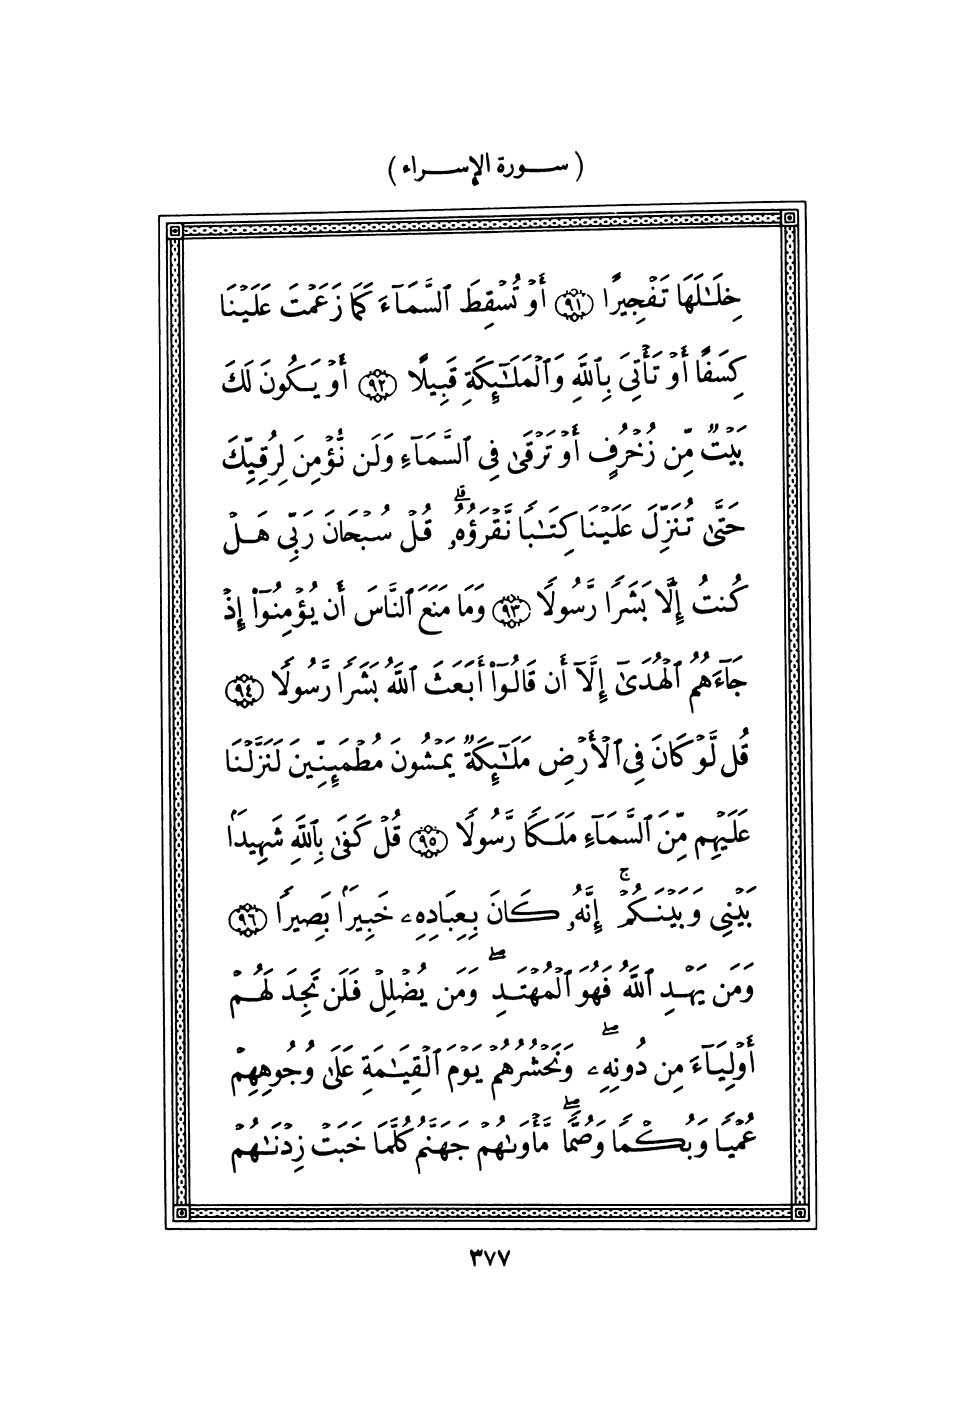 ( سورة الإسراء )
خِلَـٰلَهَا تَفْجِيرًا ﴿٩١﴾ أَوْ تُسْقِطَ ٱلسَّمَآءَ كَمَا زَعَمْتَ عَلَيْنَا
كِسَفًا أَوْ تَأْتِىَ بِٱللَّهِ وَٱلْمَلَـٰٓئِكَةِ قَبِيلًا ﴿٩٢﴾ أَوْ يَكُونَ لَكَ
بَيْتٌ مِّن زُخْرُفٍ أَوْ تَرْقَىٰ فِى ٱلسَّمَآءِ وَلَن نُّؤْمِنَ لِرُقِيِّكَ
حَتَّىٰ تُنَزِّلَ عَلَيْنَا كِتَـٰبًا نَّقْرَؤُهُۥ ۗ قُلْ سُبْحَانَ رَبِّى هَلْ
كُنتُ إِلَّا بَشَرًا رَّسُولًا ﴿٩٣﴾ وَمَا مَنَعَ ٱلنَّاسَ أَن يُؤْمِنُوٓا۟ إِذْ
جَآءَهُمُ ٱلْهُدَىٰٓ إِلَّآ أَن قَالُوٓا۟ أَبَعَثَ ٱللَّهُ بَشَرًا رَّسُولًا ﴿٩٤﴾
قُل لَّوْ كَانَ فِى ٱلْأَرْضِ مَلَـٰٓئِكَةٌ يَمْشُونَ مُطْمَئِنِّينَ لَنَزَّلْنَا
عَلَيْهِم مِّنَ ٱلسَّمَآءِ مَلَكًا رَّسُولًا ﴿٩٥﴾ قُلْ كَفَىٰ بِٱللَّهِ شَهِيدًۢا
بَيْنِى وَبَيْنَكُمْ ۚ إِنَّهُۥ كَانَ بِعِبَادِهِۦ خَبِيرًۢا بَصِيرًا ﴿٩٦﴾
وَمَن يَهْدِ ٱللَّهُ فَهُوَ ٱلْمُهْتَدِ ۖ وَمَن يُضْلِلْ فَلَن تَجِدَ لَهُمْ
أَوْلِيَآءَ مِن دُونِهِۦ ۖ وَنَحْشُرُهُمْ يَوْمَ ٱلْقِيَـٰمَةِ عَلَىٰ وُجُوهِهِمْ
عُمْيًا وَبُكْمًا وَصُمًّا ۖ مَّأْوَىٰهُمْ جَهَنَّمُ كُلَّمَا خَبَتْ زِدْنَـٰهُمْ
٣٧٧